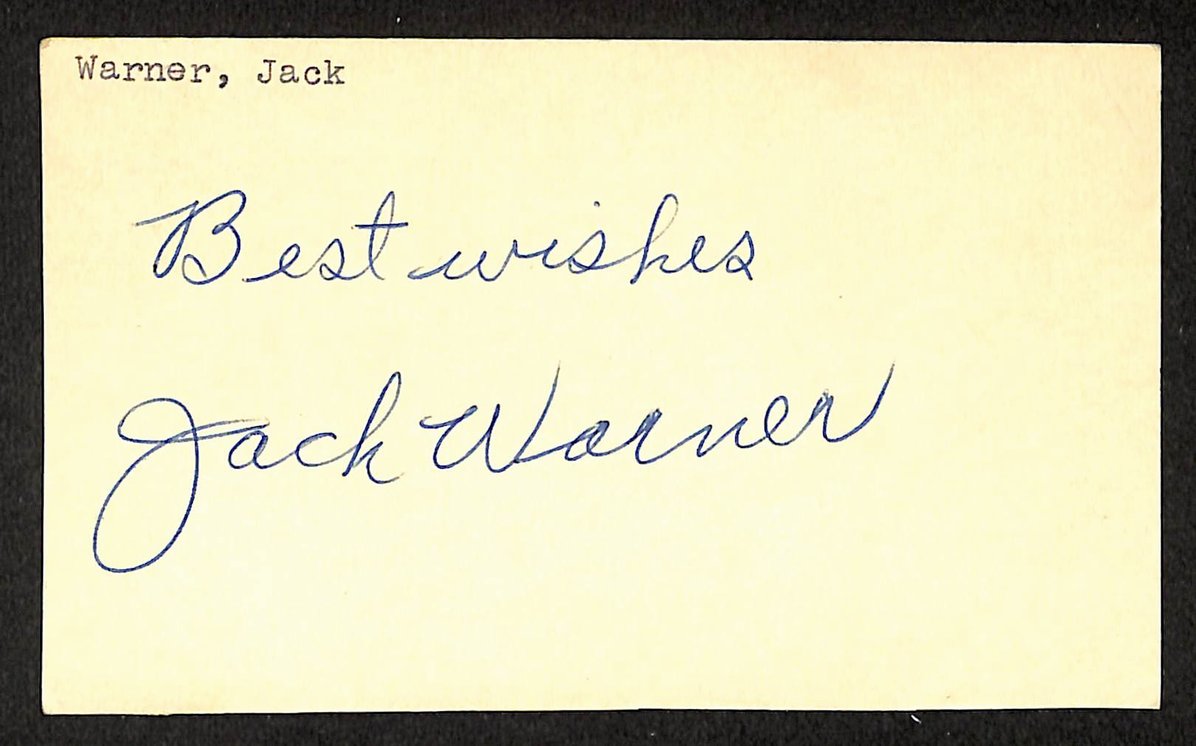 Warner, Jack
Best wishes
Jack Warner